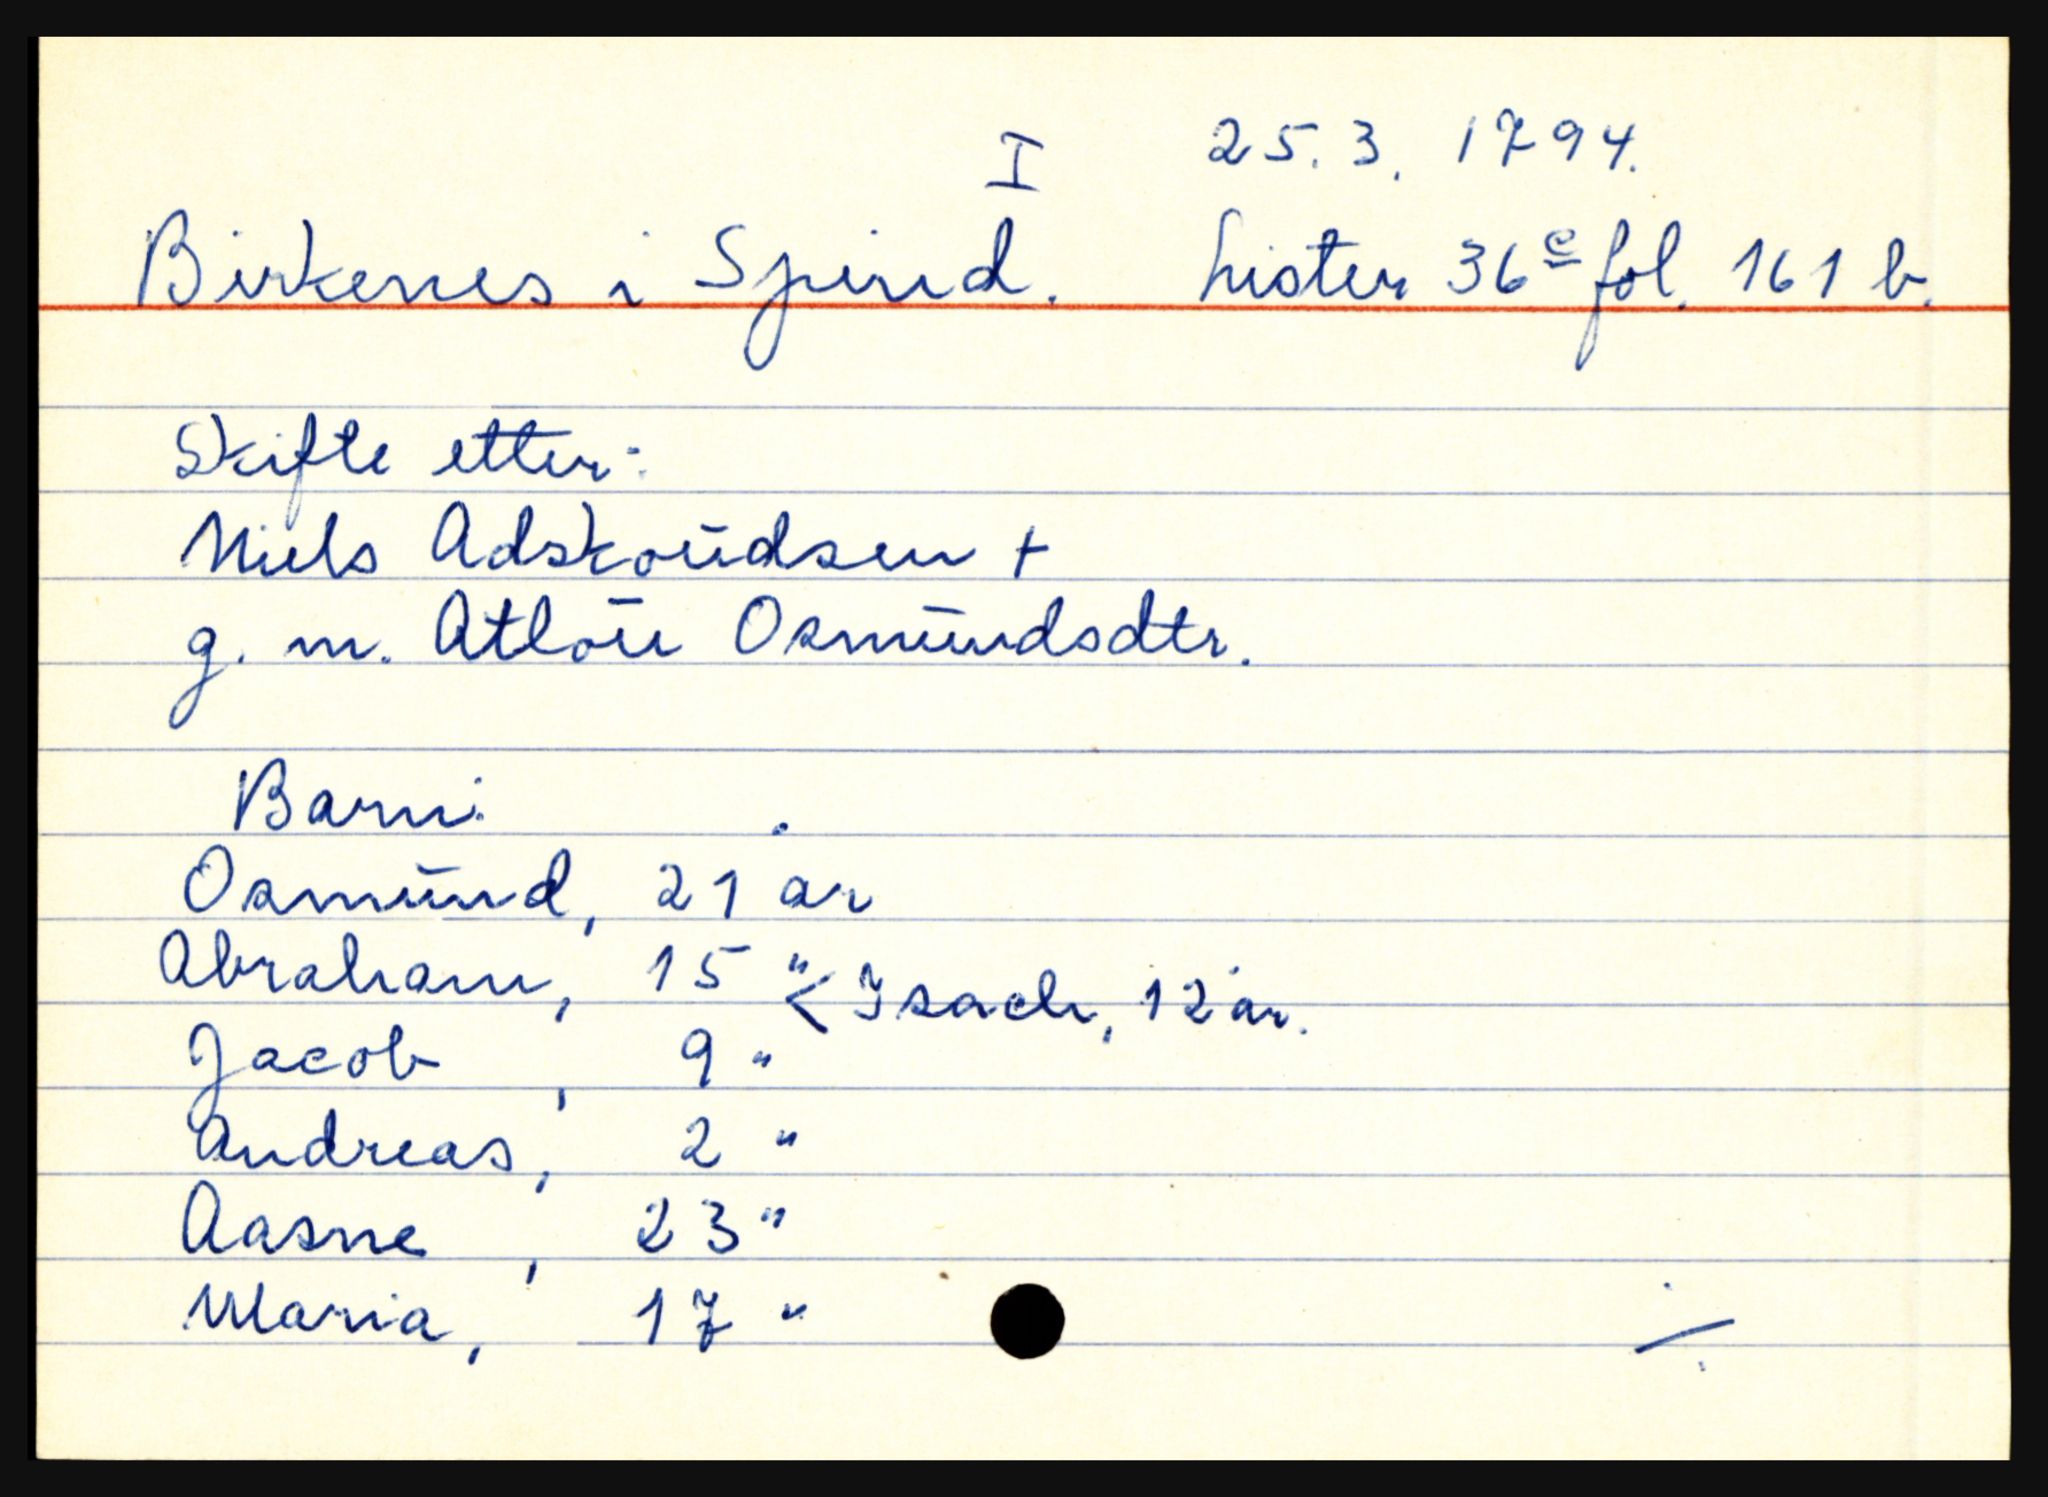 I 25.3. 1794.
Birkenes i Spind. Lister 36 c fol. 161 b.
Skifte etter:
Niels Adskoudsen +
g. m. Atlou Osmundsdtr.
Barn:
Osmund, 21 år
Abraham, 15 " < Isach, 12 år.
Jacob, 9 "
Andreas, 2 "
Aasne, 23 "
Maria, 17 "